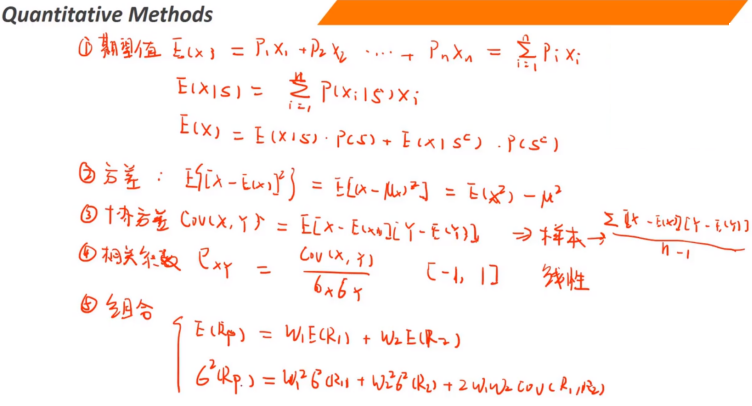 Quantitative Methods
① 期望值 E(x) = P₁x₁ + P₂x₂ ···· + Pₙxₙ = \sum_{i=1}^{n} Pᵢxᵢ
E(x|S) = \sum_{i=1}^{n} P(xᵢ|S)xᵢ
E(x) = E(x|S)·P(S) + E(x|Sᶜ)·P(Sᶜ)
② 方差: E{[x-E(x)]²} = E[(x-μₓ)²] = E(x²) - μ²
③ 协方差 Cov(x,Y) = E[x-E(x)][Y-E(Y)] ⇒ 样本 → \frac{Σ[x-E(x)][Y-E(Y)]}{n-1}
④ 相关系数 ρxY = \frac{Cov(x,Y)}{σxσY} [-1, 1] 线性
⑤ 组合
E(Rp) = W₁E(R₁) + W₂E(R₂)
σ²(Rp) = W₁²σ²(R₁) + W₂²σ²(R₂) + 2W₁W₂Cov(R₁,R₂)